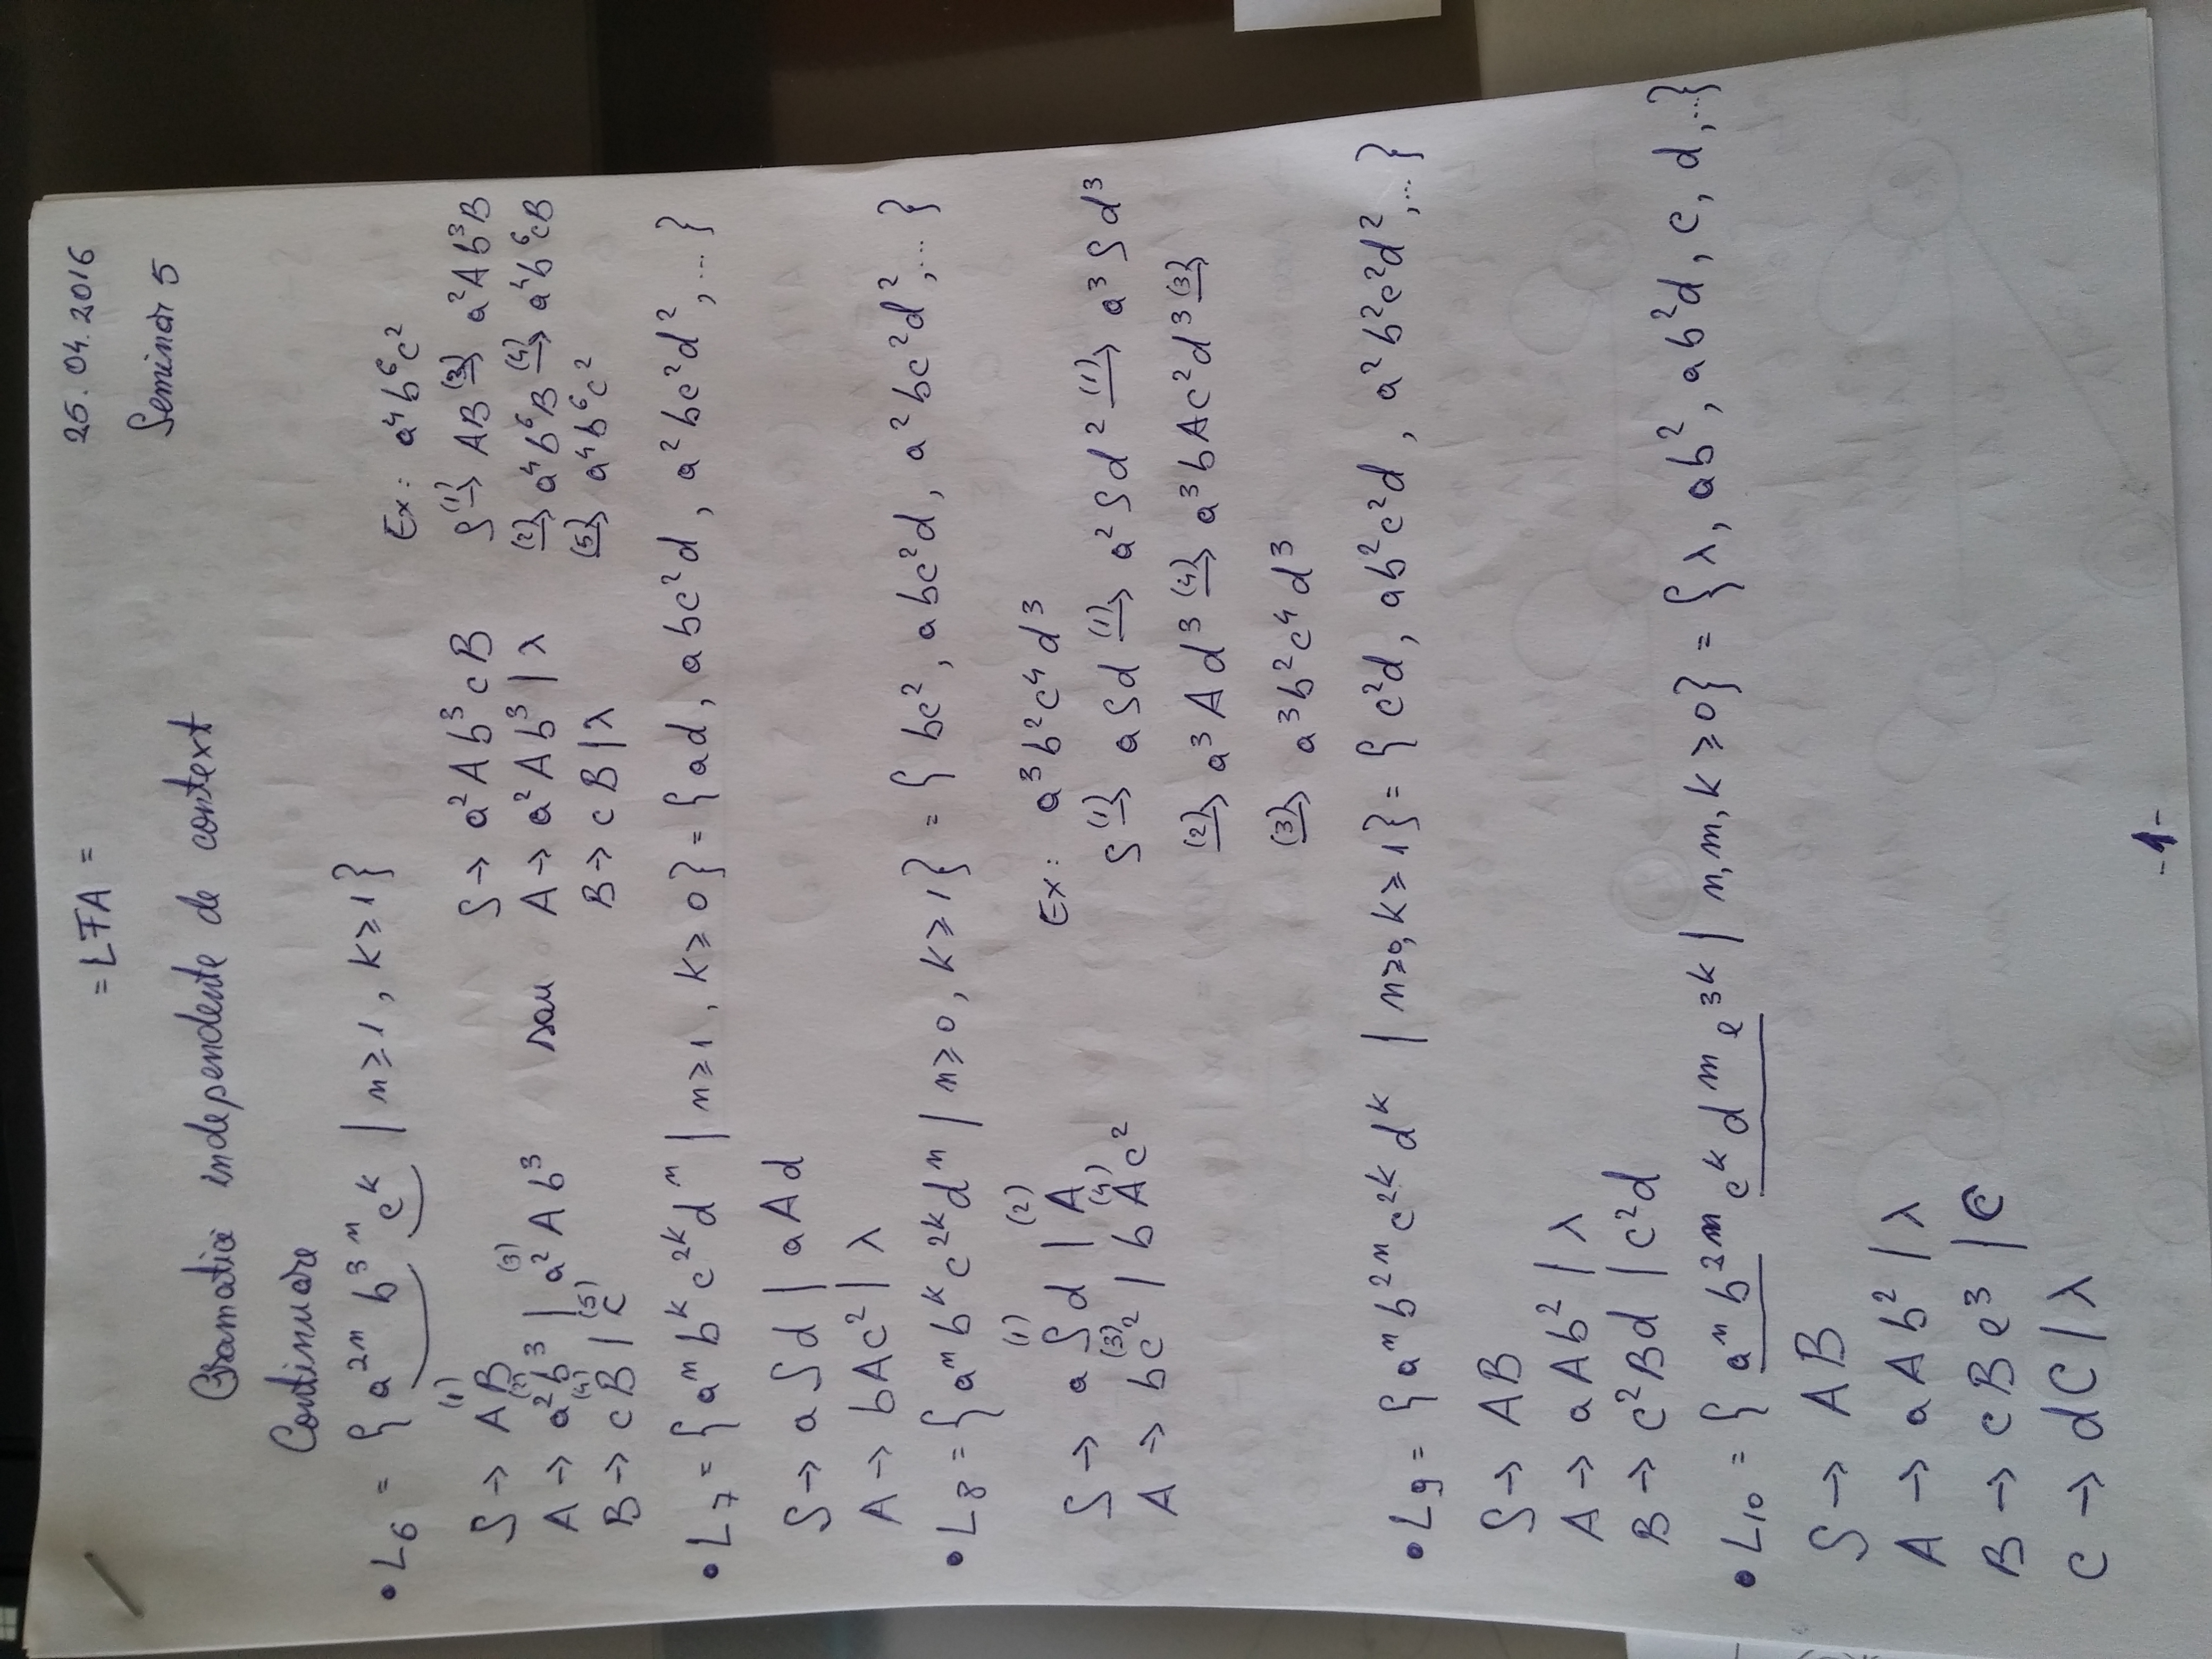 = LFA =
25.04.2016
Seminar 5
Gramatici independente de context
Continuare
• L₆ = { a²ⁿ b³ⁿ cᵏ | n ≥ 1, k ≥ 1 }
S → AB (1)
A → a²b³ (2) | a²Ab³ (3)
B → cB (4) | c (5)
sau
S → a²Ab³cB
A → a²Ab³ | λ
B → cB | λ
Ex: a⁴b⁶c²
S (1)⇒ AB (3)⇒ a²Ab³B
(2)⇒ a⁴b⁶B (4)⇒ a⁴b⁶cB
(5)⇒ a⁴b⁶c²
• L₇ = { aⁿ bᵏ c²ᵏ dⁿ | n ≥ 1, k ≥ 0 } = { ad, abc²d, a²bc²d², ... }
S → aSd | aAd
A → bAc² | λ
• L₈ = { aⁿ bᵏ c²ᵏ dⁿ | n ≥ 0, k ≥ 1 } = { bc², abc²d, a²bc²d², ... }
S → aSd (1) | A (2)
A → bc² (3) | bAc² (4)
Ex: a³b²c⁴d³
S (1)⇒ aSd (1)⇒ a²Sd² (1)⇒ a³Sd³
(2)⇒ a³Ad³ (4)⇒ a³bAc²d³ (3)⇒
(3)⇒ a³b²c⁴d³
• L₉ = { aⁿ b²ⁿ c²ᵏ dᵏ | n ≥ 0, k ≥ 1 } = { c²d, ab²c²d, a²b²c²d², ... }
S → AB
A → aAb² | λ
B → c²Bd | c²d
• L₁₀ = { aⁿ b²ⁿ cᵏ dᵐ e³ᵏ | n, m, k ≥ 0 } = { λ, ab², ab²d, c, d, ... }
S → AB
A → aAb² | λ
B → cBe³ | C
C → dC | λ
-1-